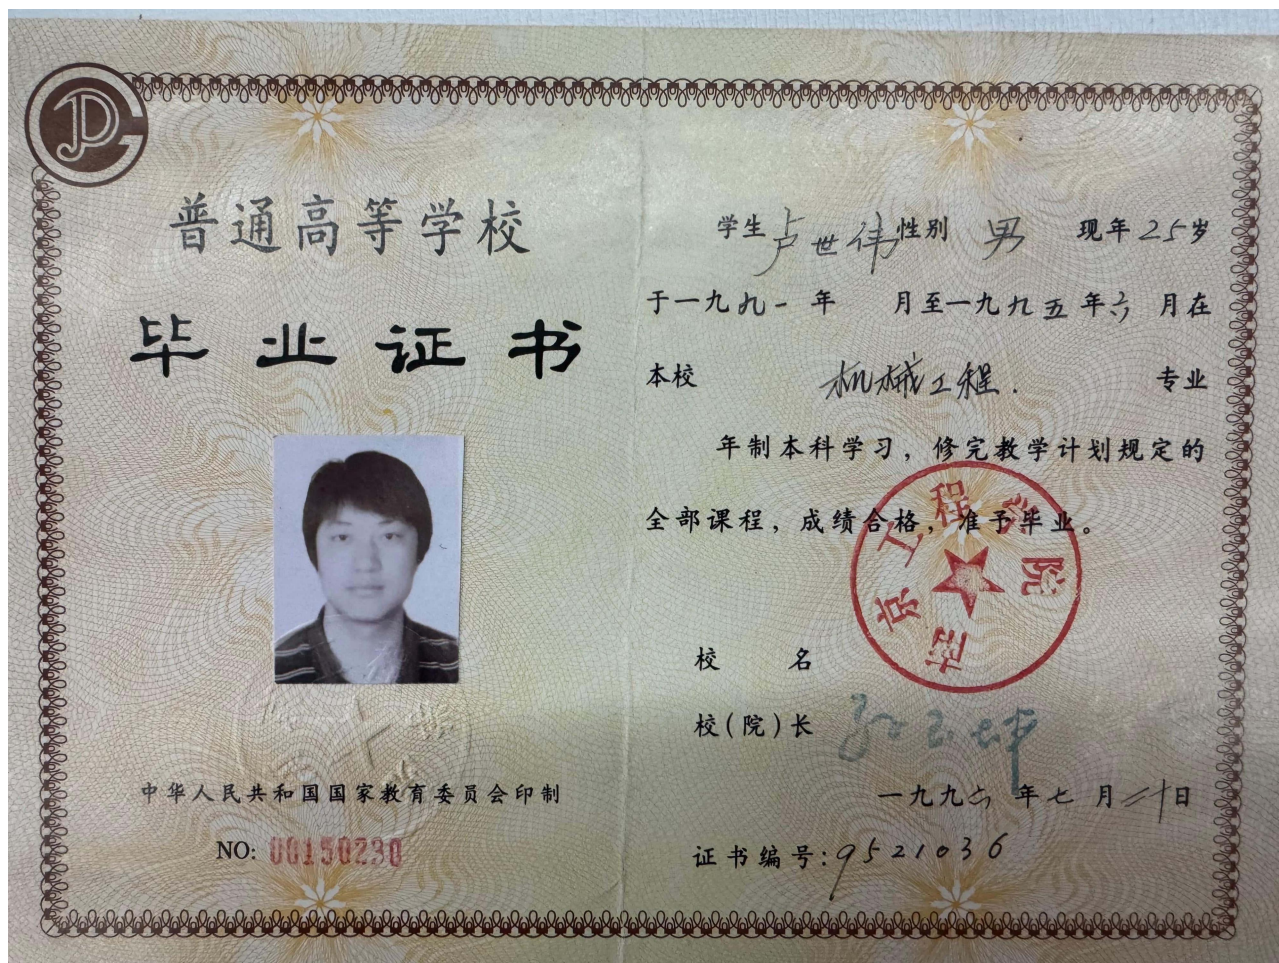 普通高等学校
毕业证书
中华人民共和国国家教育委员会印制
NO: 00150230
学生卢世伟性别 男 现年25岁
于一九九一年 月至一九九五年六月在
本校 机械工程. 专业
年制本科学习，修完教学计划规定的
全部课程，成绩合格，准予毕业。
京工程学院
校 名
校(院)长
一九九六年七月二十日
证书编号:9521036